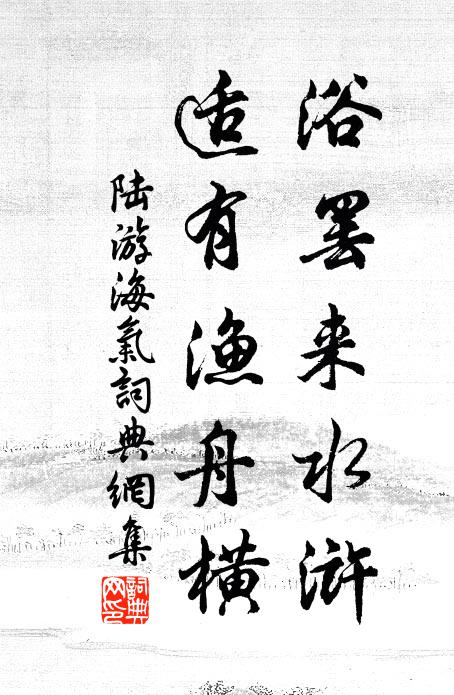 浴罢来水浒
适有渔舟横
陆游海氣詞典網集
詞典网印